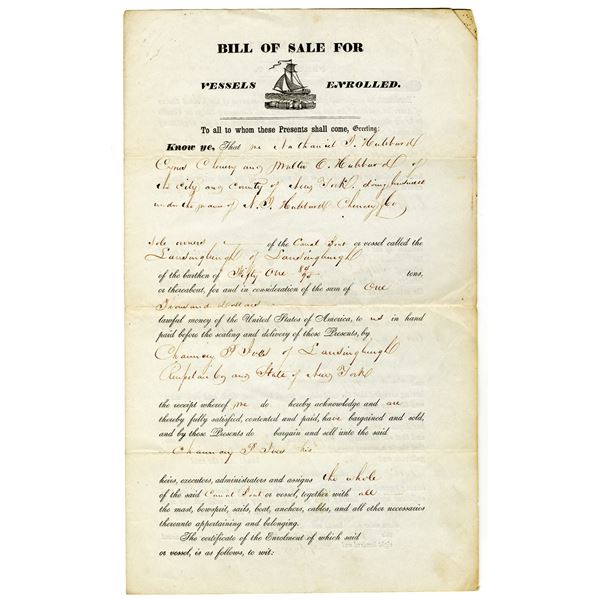 BILL OF SALE FOR
VESSELS ENROLLED.
To all to whom these Presents shall come, Greeting:
Know ye, That we Nathaniel T. Hubbard
Cyrus Cheney and Walter C. Hubbard of
the City and County of New York, doing business
under the name of N. T. Hubbard Cheney & Co
Sole owners of the Canal Boat or vessel called the
Lansingburgh of Lansingburgh
of the burthen of Fifty One tons,
or thereabout, for and in consideration of the sum of One
Thousand Dollars
lawful money of the United States of America, to us in hand
paid before the sealing and delivery of these Presents, by
Chauncey P. Ives of Lansingburgh
Rensselaer Co and State of New York
the receipt whereof we do hereby acknowledge and are
thereby fully satisfied, contented and paid, have bargained and sold,
and by these Presents do bargain and sell unto the said
Chauncey P. Ives his
heirs, executors, administrators and assigns the whole
of the said Canal Boat or vessel, together with all
the mast, bowsprit, sails, boat, anchors, cables, and all other necessaries
thereunto appertaining and belonging.
The certificate of the Enrolment of which said
or vessel, is as follows, to wit: